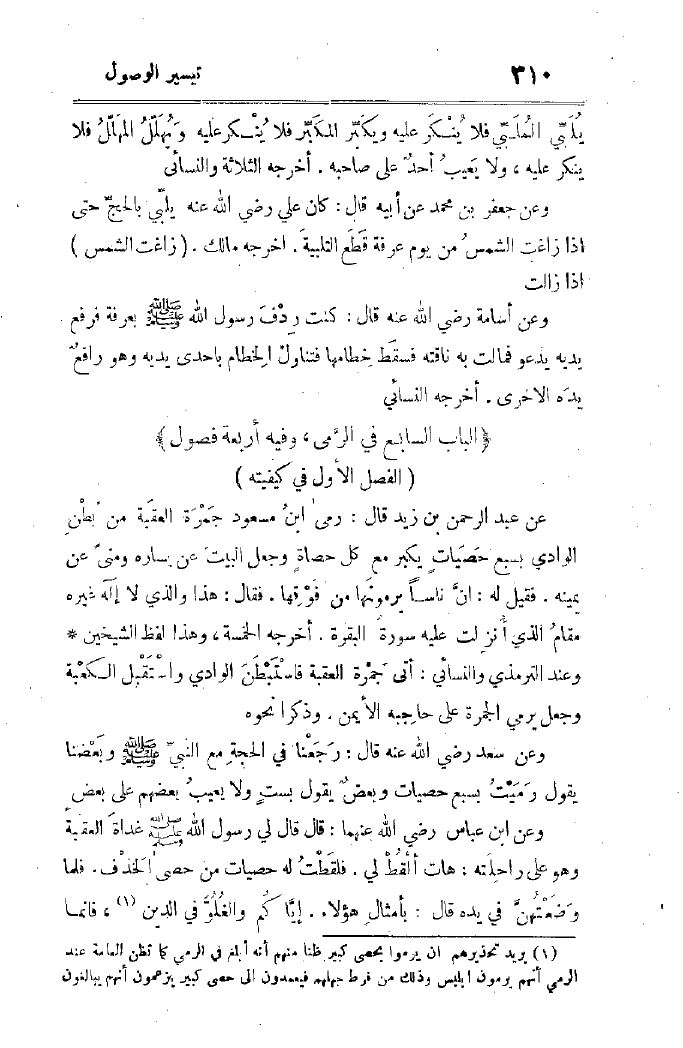 ٣١٠ تيسير الوصول
يُلَبِّي المُلَبِّي فلا يُنْكَر عليه ويكبِّر المكَبِّر فلا يُنْكر عليه وَيُهَلِّلُ المهَلِّلُ فلا
ينكر عليه ، ولا يَعيبُ أحدٌ على صاحبه . أخرجه الثلاثة والنسائي
وعن جعفر بن محمد عن أبيه قال : كان علي رضي الله عنه يلبِّي بالحجِّ حتى
اذا زاغتِ الشمسُ من يوم عرفة قَطَع التلبيةَ . اخرجه مالك . ( زاغت الشمس )
اذا زالت
وعن أسامة رضي الله عنه قال : كنت رِدْفَ رسول الله ﷺ بعرفة فرفع
يديه يدعو فمالت به ناقته فسقَط خِطامها فتناولَ الخطام باحدى يديه وهو رافعٌ
يدَه الاخرى . أخرجه النسائي
﴿الباب السابع في الرَّمى ، وفيه أربعة فصول﴾
( الفصل الأول في كيفيته )
عن عبد الرحمن بن زيد قال : رمى ابنُ مسعود جَمْرَة العقبَة من بَطْنِ
الوادي بسبع حَصَياتٍ يكبر مع كل حصاةٍ وجعل البيتَ عن يساره ومنىً عن
يمينه . فقيل له : انَّ ناساً يرمونَها من فَوْقِها . فقال : هذا والذي لا إلَه غيره
مقامُ الذي أُنزِلت عليه سورةُ البقرة . أخرجه الخمسة ، وهذا لفظ الشيخين *
وعند الترمذي والنسائي : أتى جَمْرة العقبة فاسْتَبْطَنَ الوادي واسْتَقْبل الكعْبة
وجعل يرمي الجمرة على حاجبه الأيمن . وذكرا نحوه
وعن سعد رضي الله عنه قال : رَجَعْنا في الحجة مع النبيّ ﷺ وبَعْضنا
يقول رَمَيْتُ بسبع حصيات وبعضٌ يقول بست ولا يعيبُ بعضهم على بعض
وعن ابن عباس رضي الله عنهما : قال قال لي رسول الله ﷺ غداةَ العقبة
وهو على راحلته : هات ألْقُطْ لي . فلقَطْتُ له حصيات من حصى الخذْف . فلما
وَضَعْتُهُنَّ في يده قال : بأمثال هؤلاء . إيَّا كُم والغُلُوَّ في الدين (١) ، فانما
(١) يريد تحذيرهم ان يرموا بحصى كبير ظنا منهم أنه أبلغ في الرمي كما تظن العامة عند
الرمي أنهم يرمون ابليس وذلك من فرط جهلهم فيعمدون الى حصى كبير يزعمون أنهم يبالغون